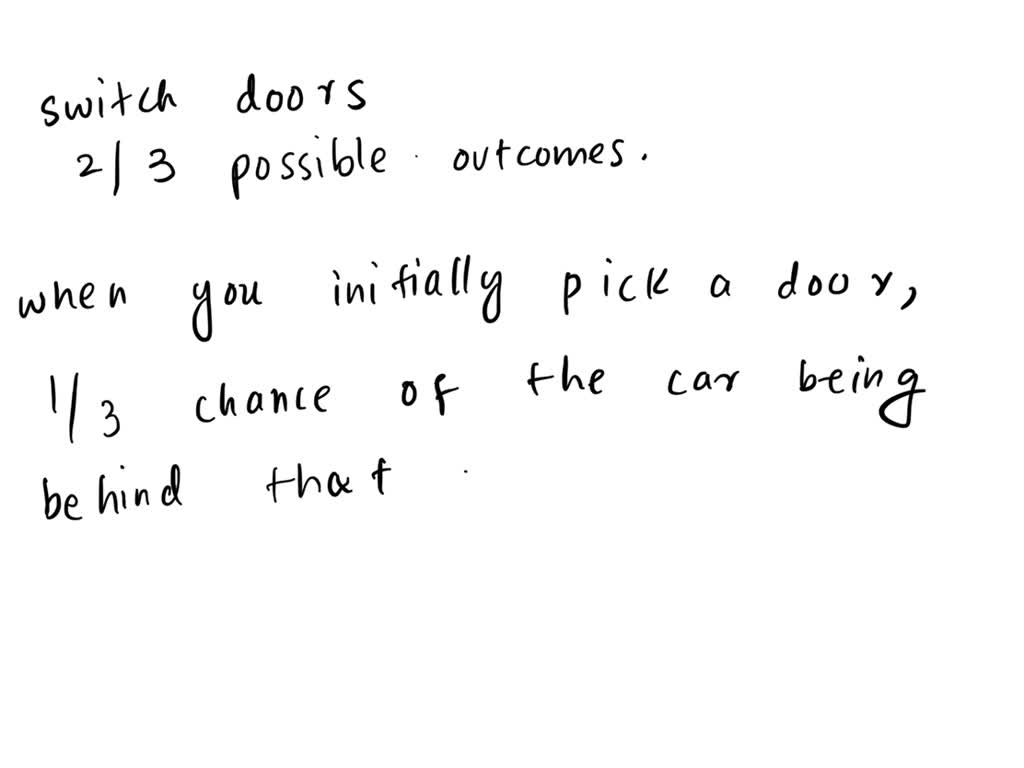 switch doors
2/3 possible outcomes.
when you initially pick a door,
1/3 chance of the car being
behind that